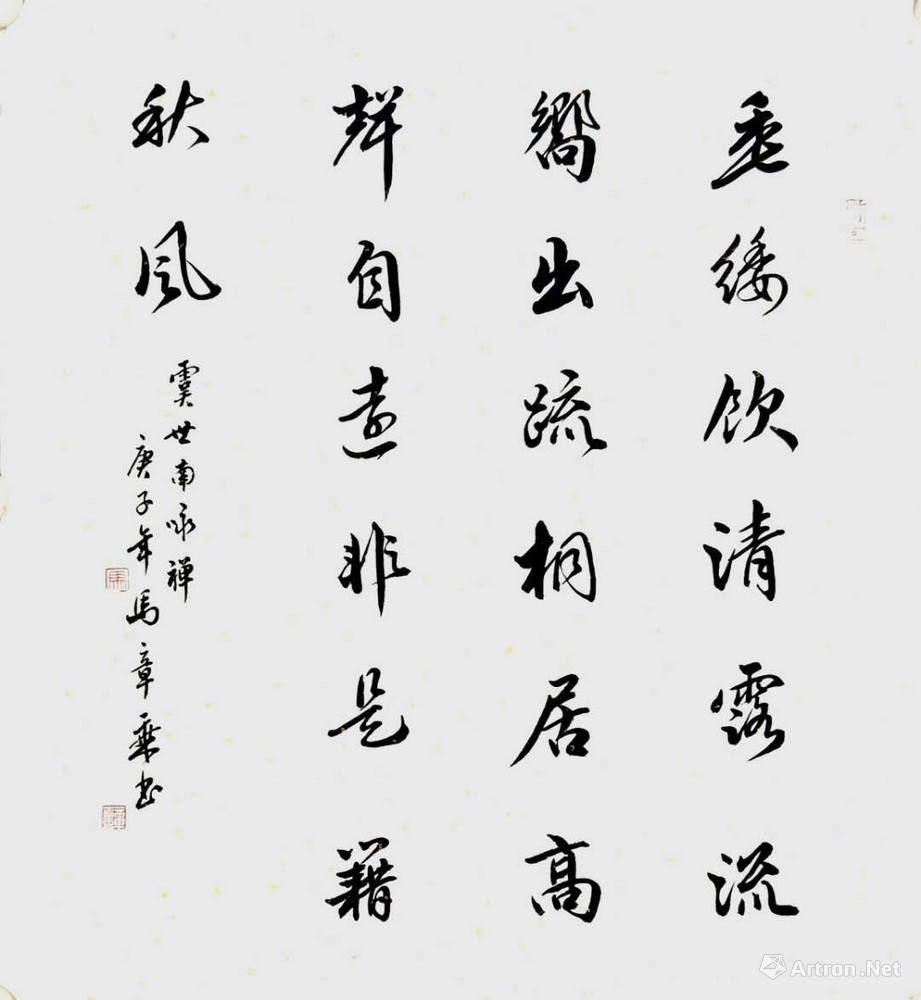 垂緌飲清露流
嚮出疏桐居高
聲自遠非是籍
秋風
虞世南咏禅
庚子年馬章乘书
Artron.Net